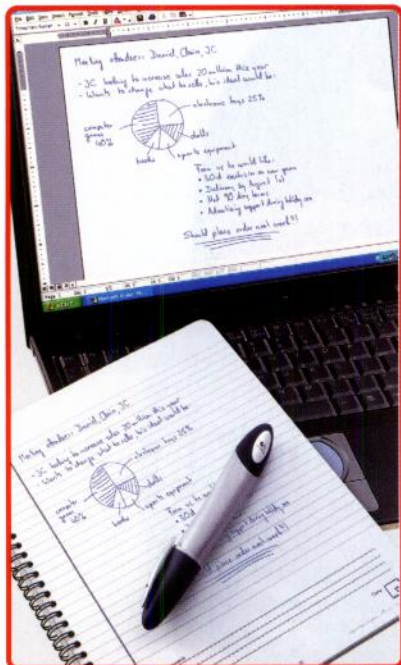 Meeting attendees: Daniel, Claire, JC
- JC looking to increase sales 20 million this year
- Wants to change what he sells, his ideal would be:
electronic toys 25%
computer games 40%
dolls
books
sports equipment
From us he would like:
• Delivery by August 1st
• Net 90 day terms
• Advertising support during holiday
Should place order next week!!
Page 1
Meeting attendees: Daniel, Claire, JC
- JC looking to increase sales 20 million this year
- Wants to change what he sells, his ideal would be:
electronic toys 25%
computer games 40%
dolls
books
sports equipment
From us he would
place order next week!!